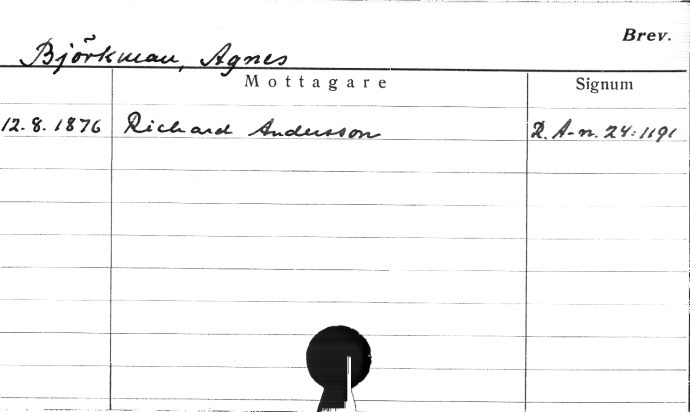 Brev.
Björkman, Agnes
Mottagare Signum
12.8.1876 Richard Andersson R. A-n. 24:1191